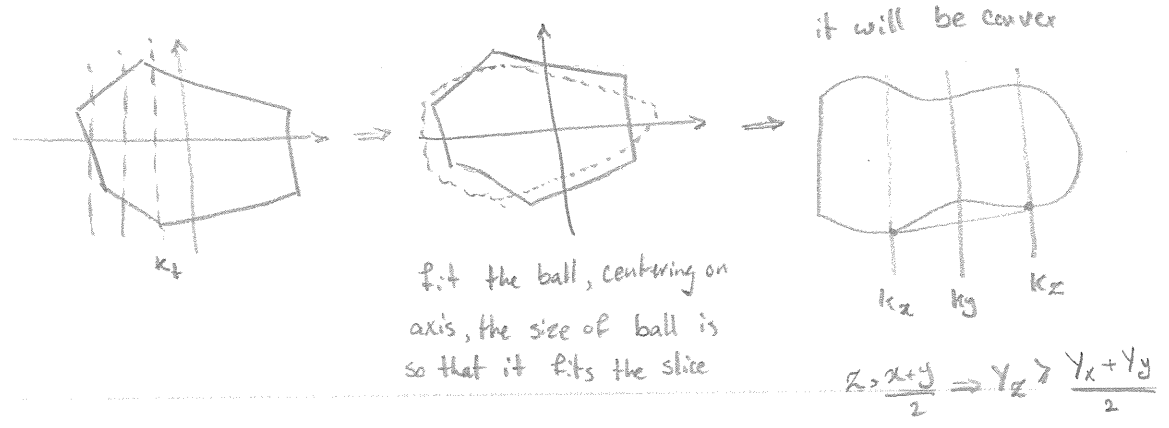 it will be convex
K_t
fit the ball, centering on
axis, the size of ball is
so that it fits the slice
K_x K_y K_z
Z = x+y/2 ⇒ Y_z ≥ Y_x + Y_y/2